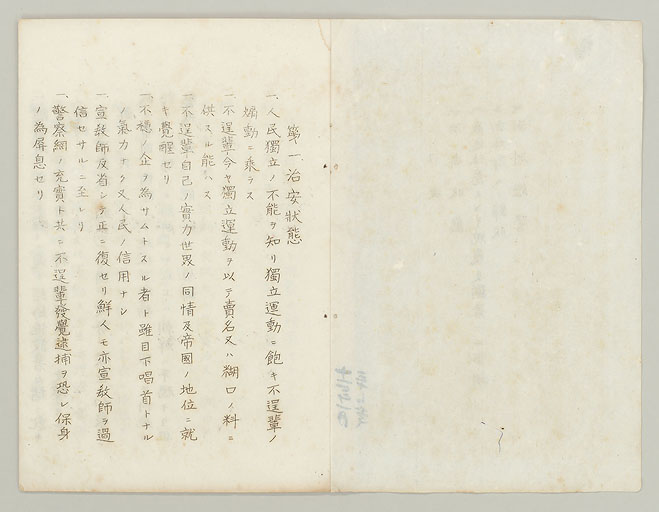 第一治安狀態
一、人民獨立ノ不能ヲ知リ獨立運動ニ飽キ不逞輩ノ
煽動ニ乘ラス
一、不逞輩今ヤ獨立運動ヲ以テ賣名又ハ糊口ノ料ニ
供スル能ハス
一、不逞輩自己ノ實力世界ノ同情及帝國ノ地位ニ就
キ覺醒セリ
一、不穩ノ企ヲ為サムトスル者ト雖目下唱首トナル
ノ氣力ナク又人民ノ信用ナシ
一、宣敎師反省シテ正ニ復セリ鮮人モ亦宣敎師ヲ過
信セサルニ至レリ
一、警察網ノ充實ト共ニ不逞輩發覺逮捕ヲ恐レ保身
ノ為屏息セリ